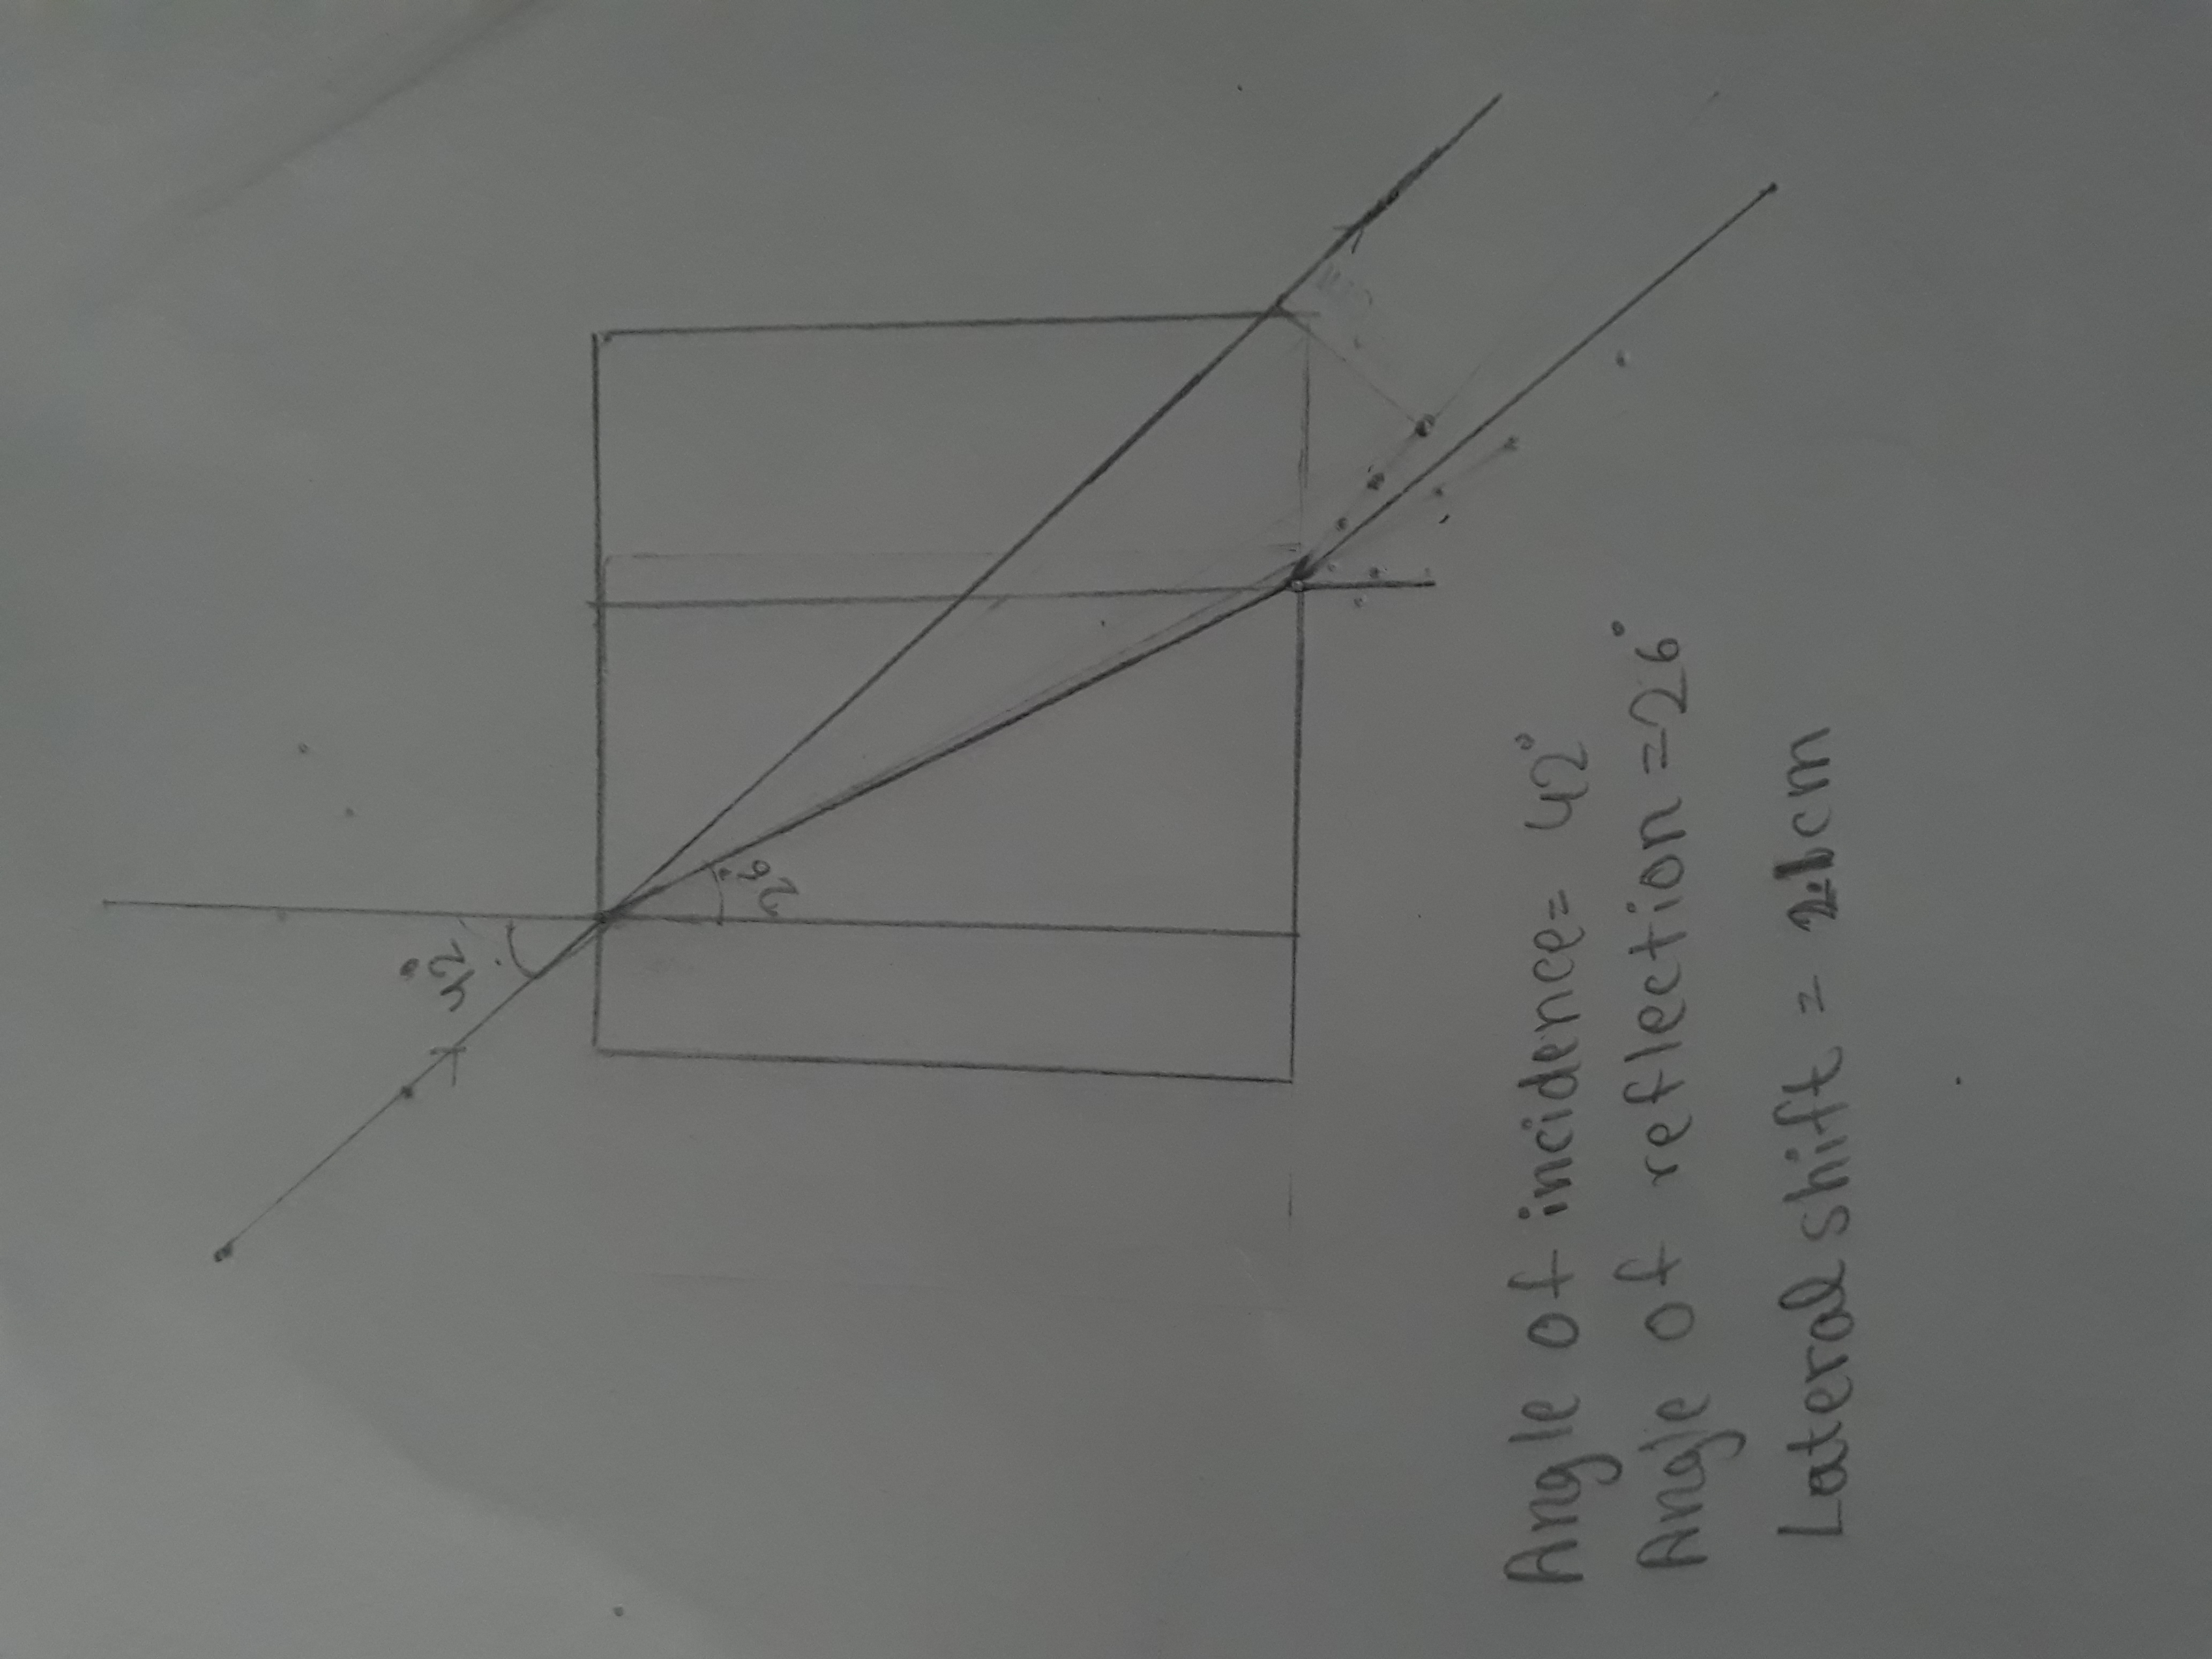 42°
26°
Angle of incidence= 42°
Angle of reflection =26°
Lateral shift = 2.1cm